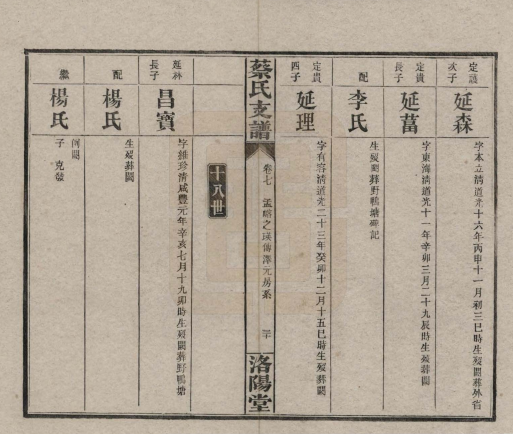 定議次子
延森
字本立淸道光十六年丙申十一月初三巳時生歿闕葬外官
定貴長子
延菖
字東海淸道光十一年辛卯三月二十九辰時生歿葬闕
配
李氏
生歿闕葬野鴨塘碑記
定貴四子
延理
字有容淸道光二十三年癸卯十二月十五巳時生歿葬闕
蔡氏支譜
卷七
之瑛傳澤元房系
三十
洛陽堂
十八世
延林長子
昌寶
字維珍淸咸豐元年辛亥七月十九卯時生歿闕葬野鴨塘
配
楊氏
生歿葬闕
繼
楊氏
何闕
子 克發